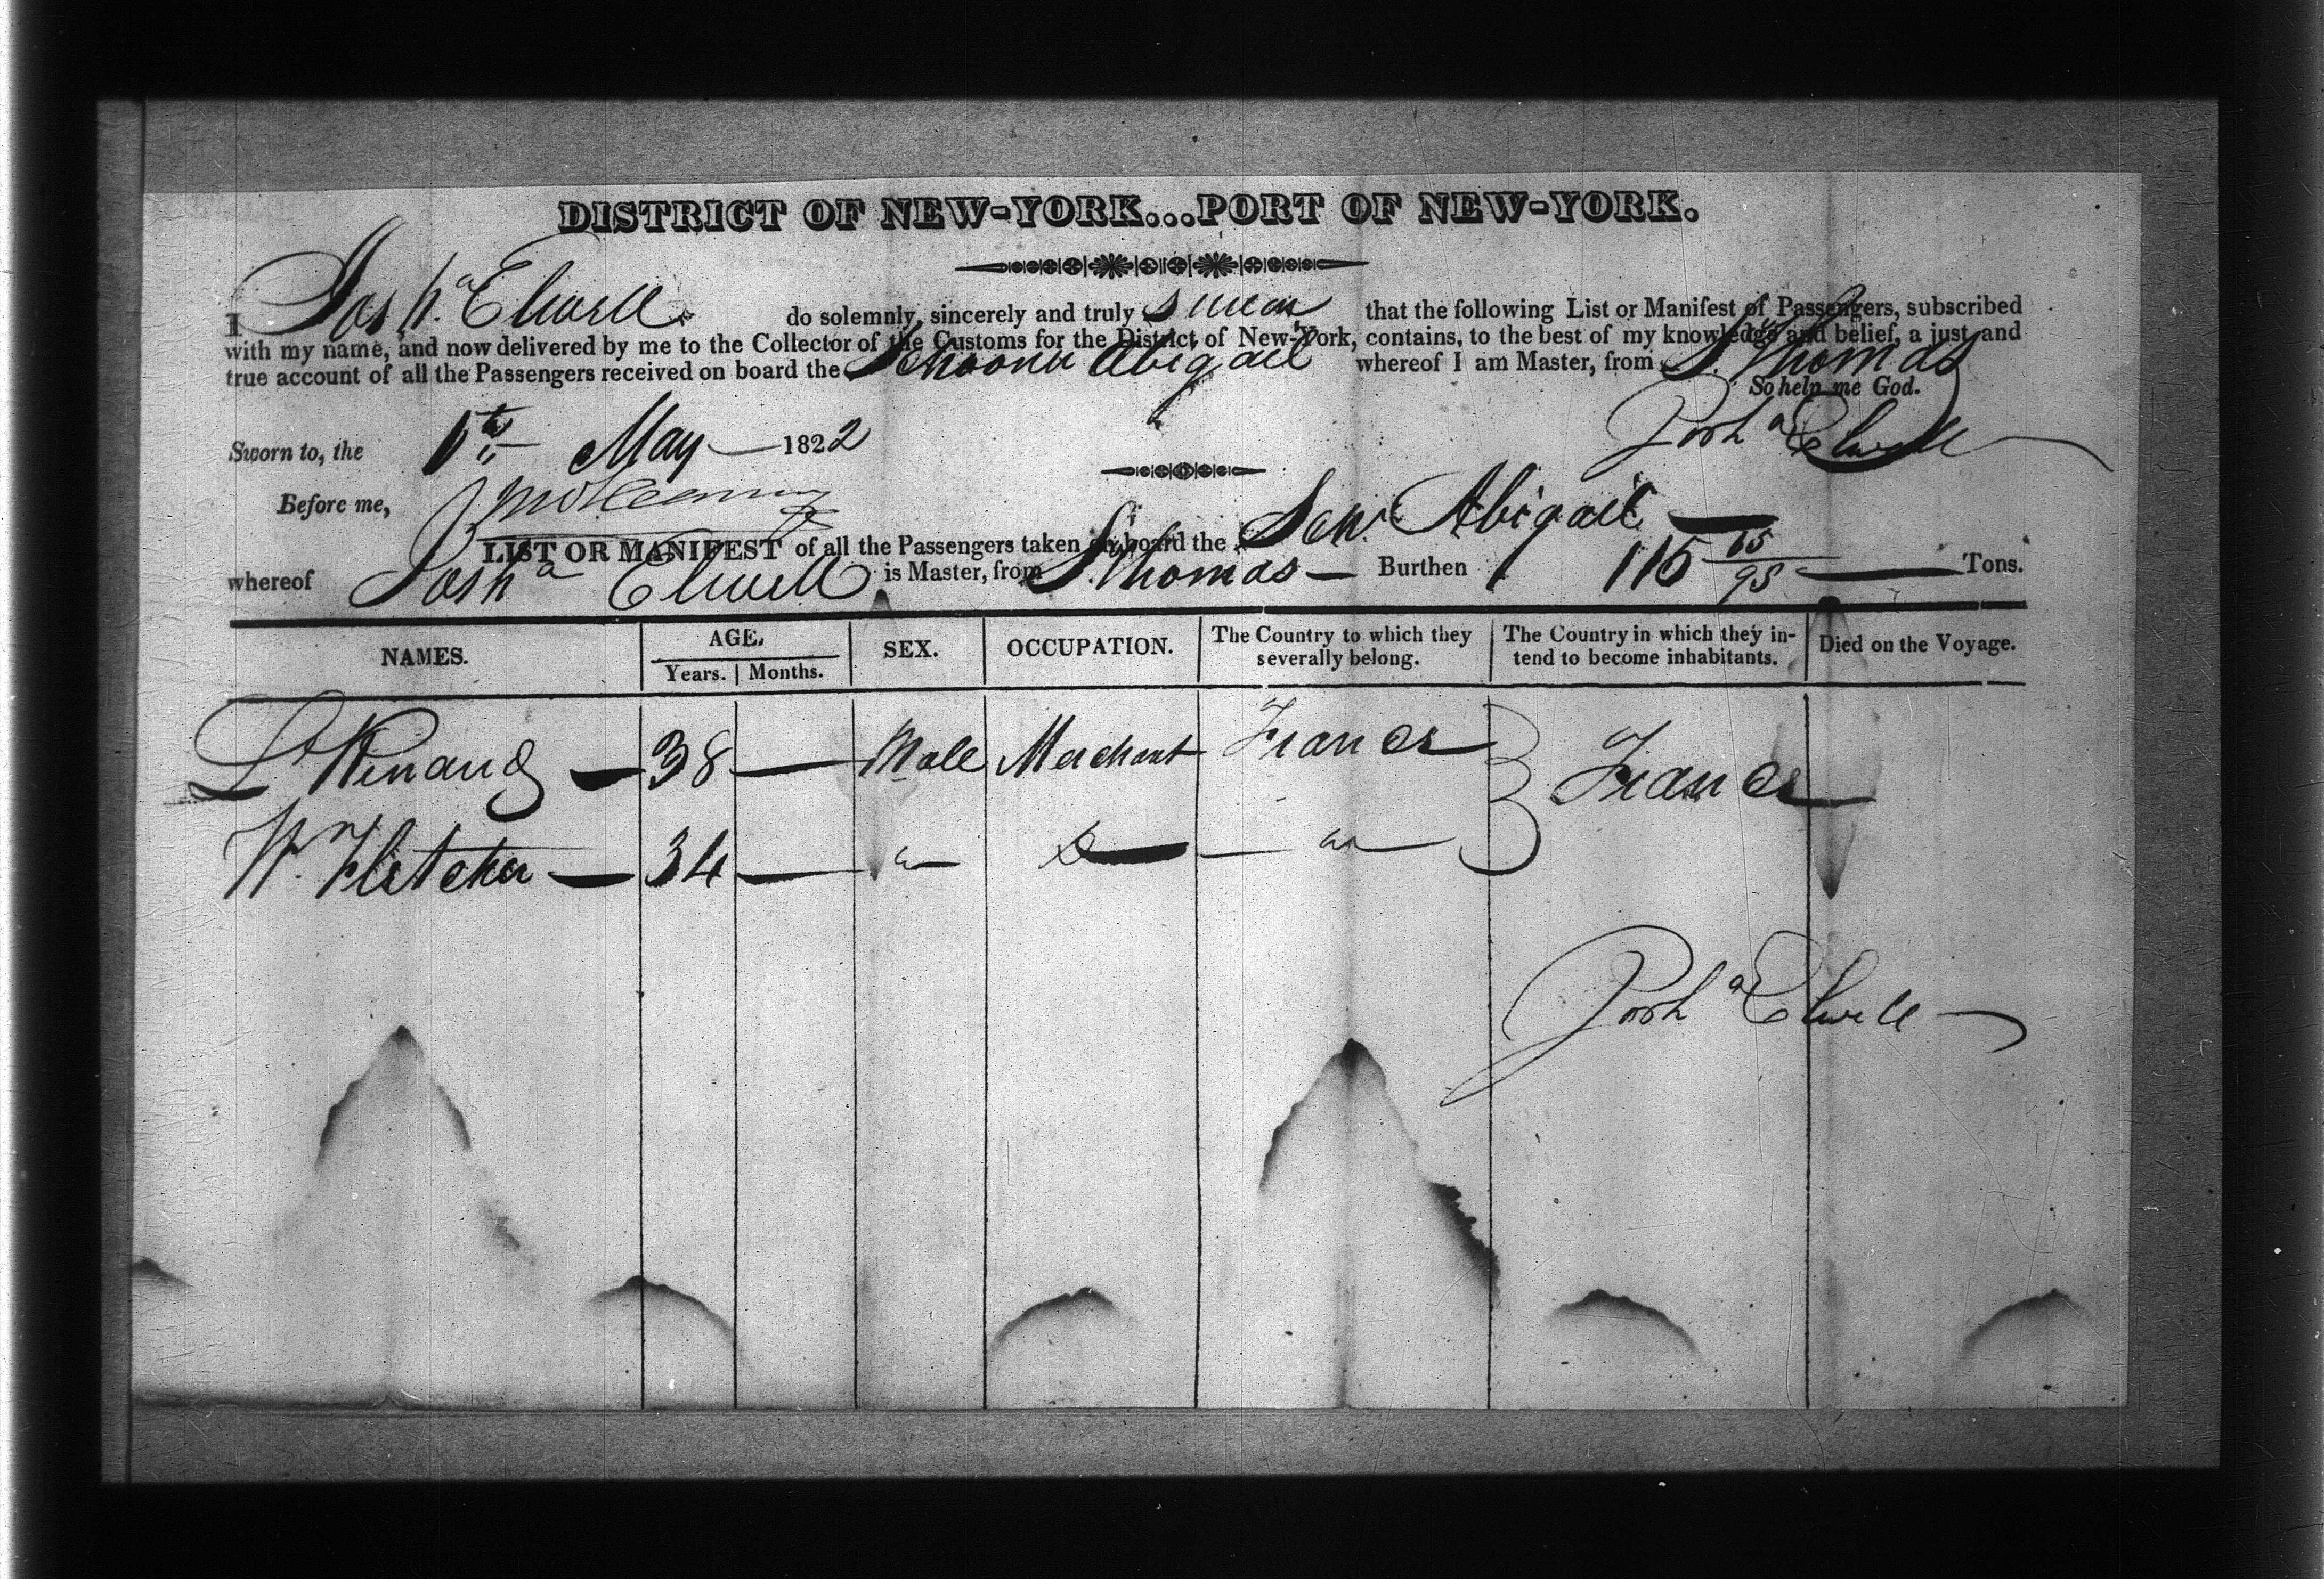 DISTRICT OF NEW-YORK...PORT OF NEW-YORK.
I Josh.a Elwell do solemnly, sincerely and truly swear that the following List or Manifest of Passengers, subscribed
with my name, and now delivered by me to the Collector of the Customs for the District of New-York, contains, to the best of my knowledge and belief, a just and
true account of all the Passengers received on board the Schooner Abigail whereof I am Master, from St. Thomas
So help me God.
Sworn to, the May 1822 Josha Elwell
Before me,
LIST OR MANIFEST of all the Passengers taken on board the Schr. Abigail
whereof Josha Elwell is Master, from St. Thomas Burthen 115 65/95 Tons.
NAMES. AGE. SEX. OCCUPATION. The Country to which they severally belong. The Country in which they intend to become inhabitants. Died on the Voyage.
Years. Months.
38 Male Merchant France France
Wm Fletcher 34 " "
Josha Elwell